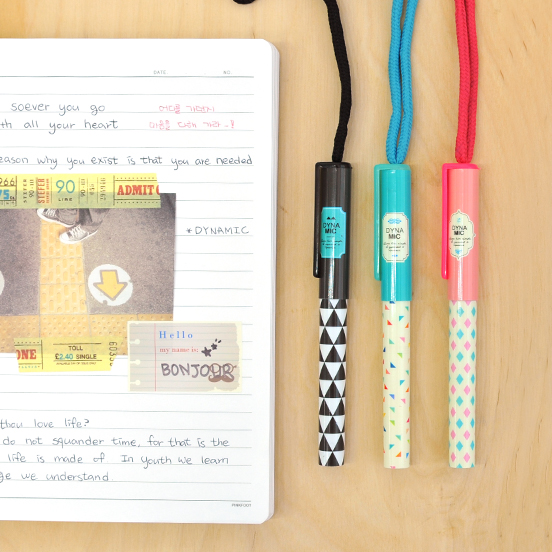 DATE NO
soever you go
th all your heart
어디를 가던지
마음을 다해 가라-!
eason why you exist is that you are needed
966
75
90
LIRE
ADMIT
* DYNAMIC
ONE
TOLL
£2.40 SINGLE
Hello
my name is,
BONJOUR
thou love life?
do not squander time, for that is the
life is made of In youth we learn
ge we understand.
DYNA
MIC
DYNA
MIC
DYNA
MIC